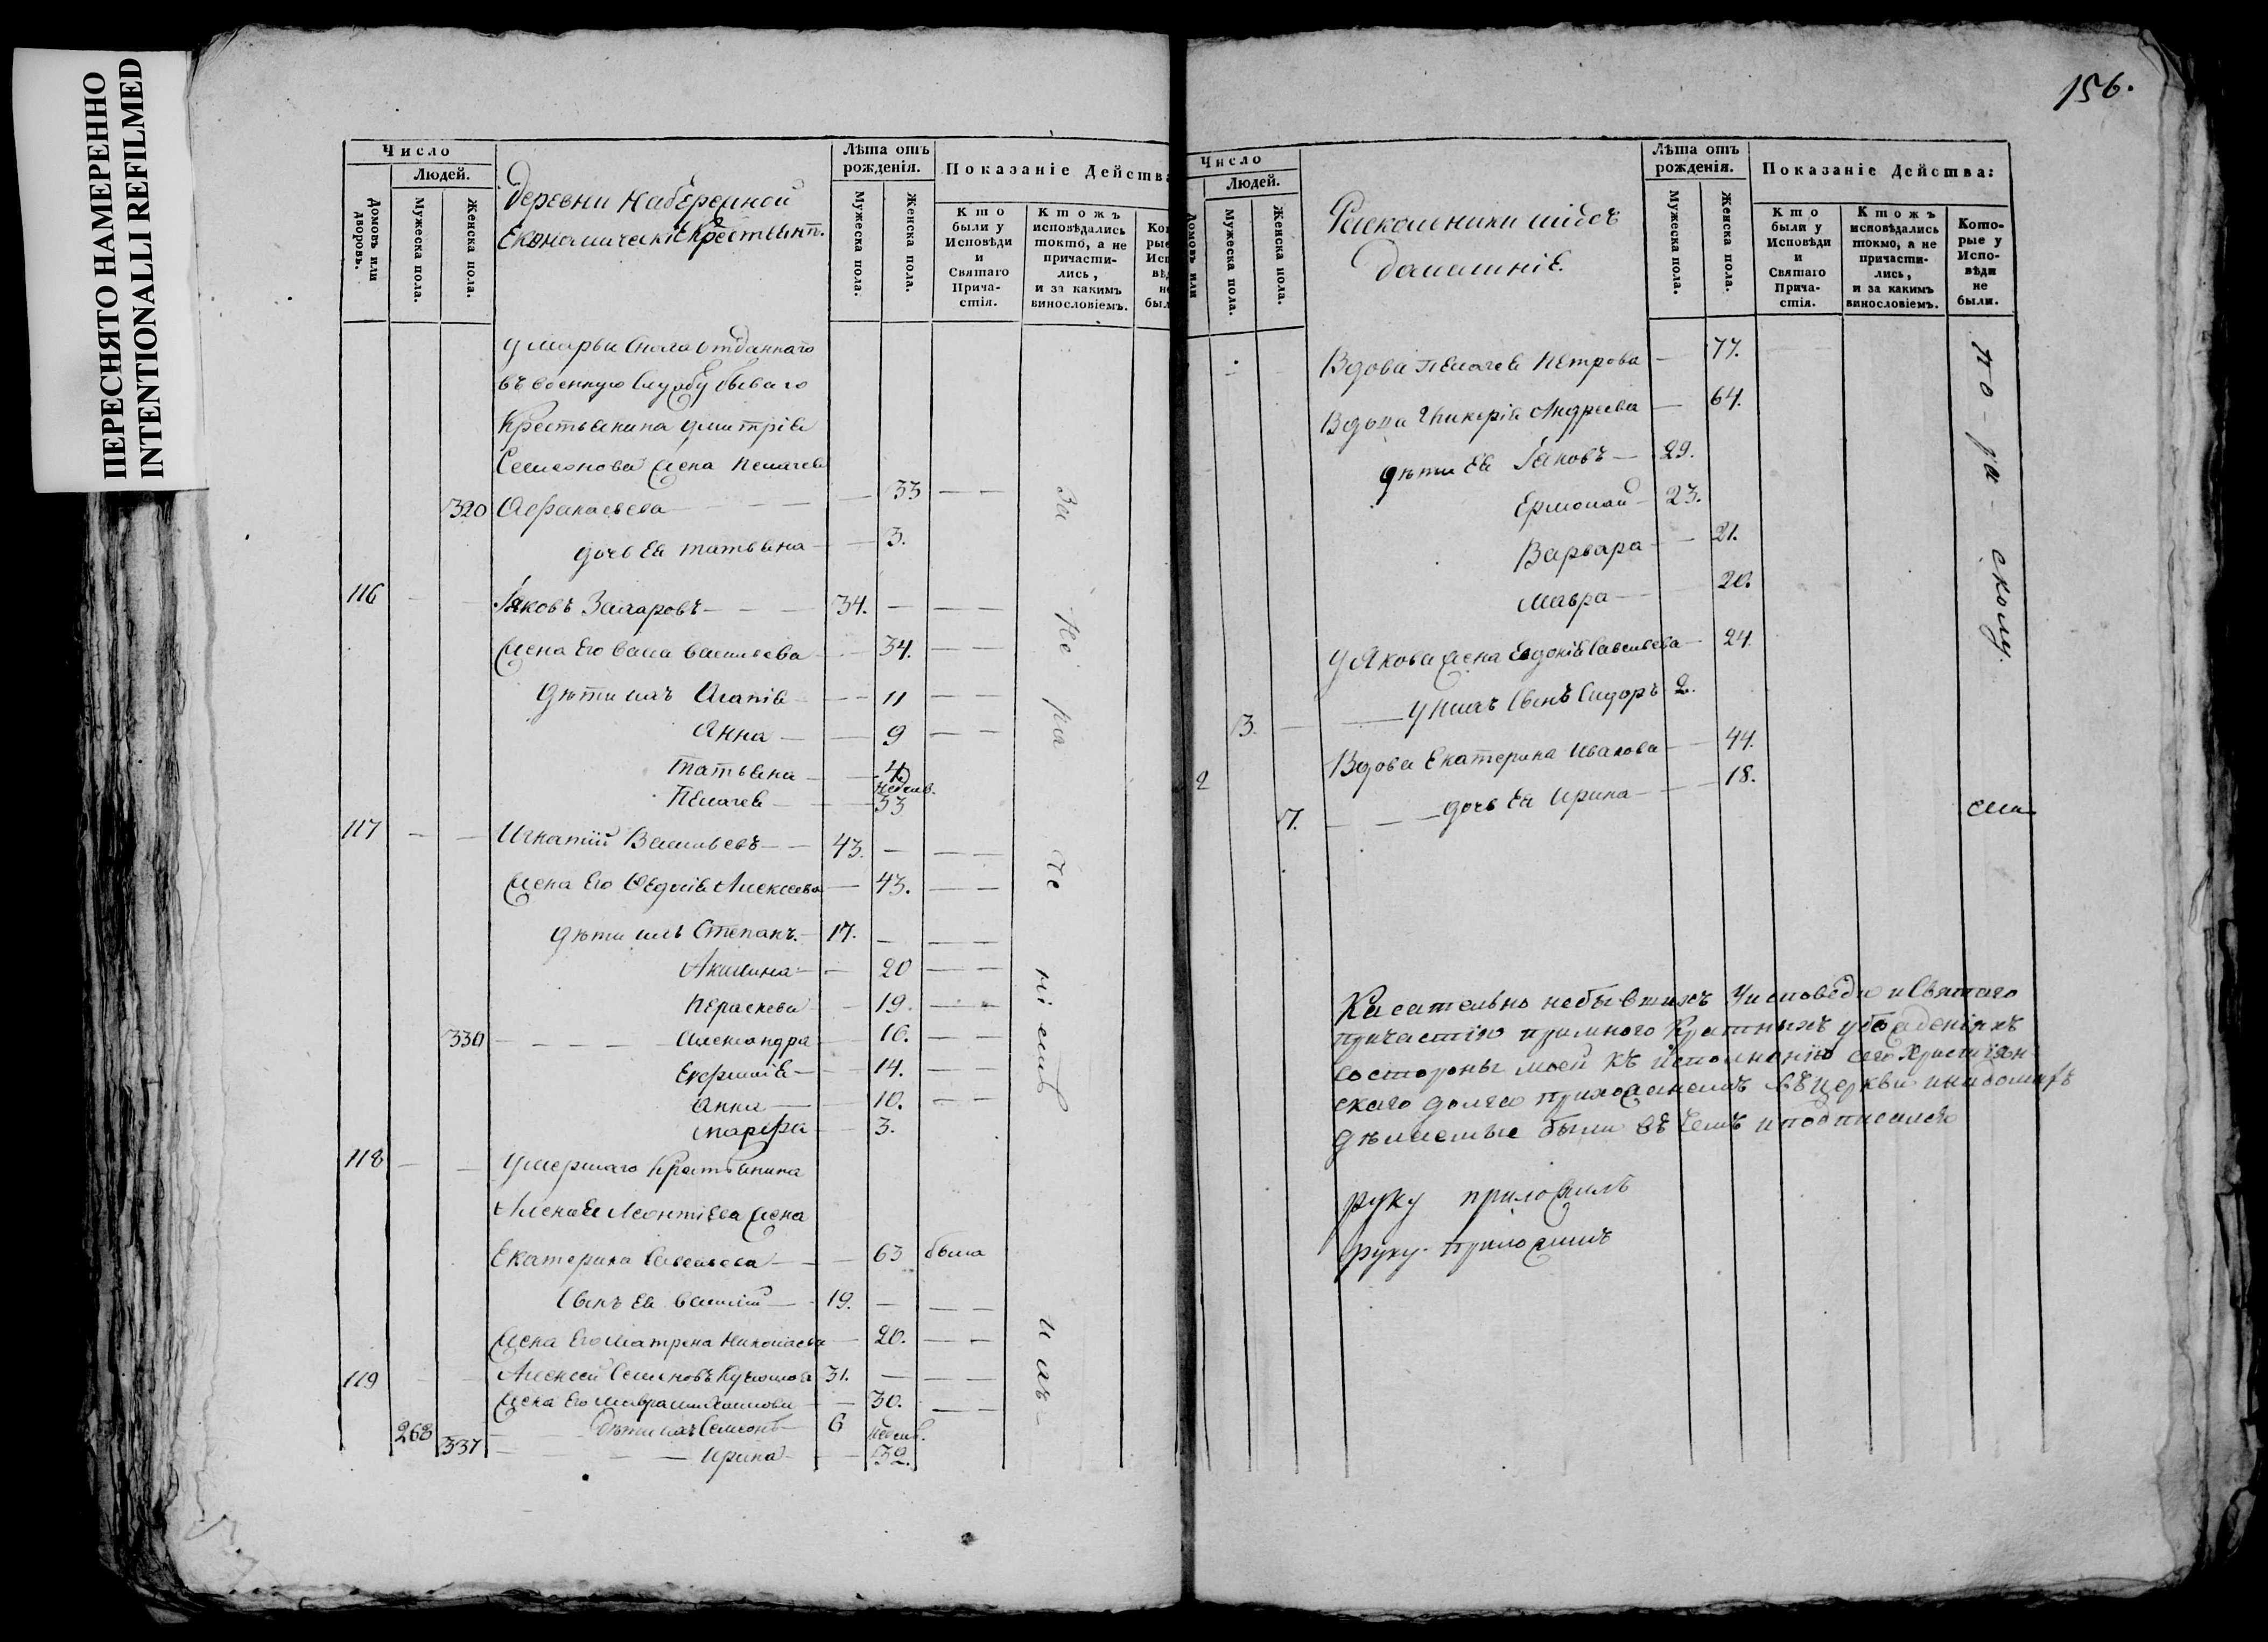 ПЕРЕСНЯТО НАМЕРЕННО
INTENTIONALLI REFILMED
Число
Людей.
Домовъ или дворовъ.
Мужеска пола.
Женска пола.
Деревни Набережной
Економически Крестьян.
Лѣта отъ рожденія.
Мужеска пола.
Женска пола.
Показаніе Действа
Кто были у Исповѣди и Святаго Прича-стія.
Ктожъ исповѣдались токмо, а не причасти-лись, и за какимъ винословіемъ.
въ военную Службу бываго
Крестьянина Дмитрія
Семенова жена Пелагея
320 Афанасьева 33
дочь Ея Татьяна 3.
116 Іяковъ Захаровъ 34.
жена Его Васильева 34.
дѣти ихъ Агапія 11
Анна 9
Татьяна 4.
недель.
Пелагея 33
117 Игнатій Васильевъ 43.
жена Его Алексеева 43.
дѣти ихъ Степанъ. 17.
Акилина 20
Параскева 19.
330 Александра 16.
Евфимія 14.
Анна 10.
Марфа 3.
118 умершаго Крестьянина
Леонтіева жена
Екатерина Савельева 63 была
Сынъ Ея Василій 19.
жена Его Матрена Николаева 20.
119 Алексей Семеновъ 31.
жена Его Мавра 30.
дѣти ихъ Семенъ 6
недель.
268 337 Ирина 32.
За не ра че ні емъ ихъ
156.
Число
Людей.
Домовъ или
Мужеска пола.
Женска пола.
Раскольники
домашніе.
Лѣта отъ рожденія.
Мужеска пола.
Женска пола.
Показаніе Действа:
Кто были у Исповѣди и Святаго Прича-стія.
Ктожъ исповѣдались токмо, а не причасти-лись, и за какимъ винословіемъ.
Кото-рые у Испо-вѣди не были.
Вдова Пелагея Петрова 77.
Вдова Гликерія Андреева 64.
дѣти Ея Іяковъ 29.
Ермолай 23.
Варвара 21.
Мавра 20.
У Якова жена Евдокія Савельева 24.
у нихъ Сынъ Сидоръ 2.
3.
Вдова Екатерина Иванова 44.
2
дочь Ея Ирина 18.
7.
Касательно небывшихъ Уисповеди и Святаго
причастія примного Кратныхъ убежденіяхъ
состороны моей къ исполненію сего Христіян
скаго долга прихожанемъ въ церкви и
дѣлаемые были въ чемъ и подписался
руку приложилъ
руку приложилъ